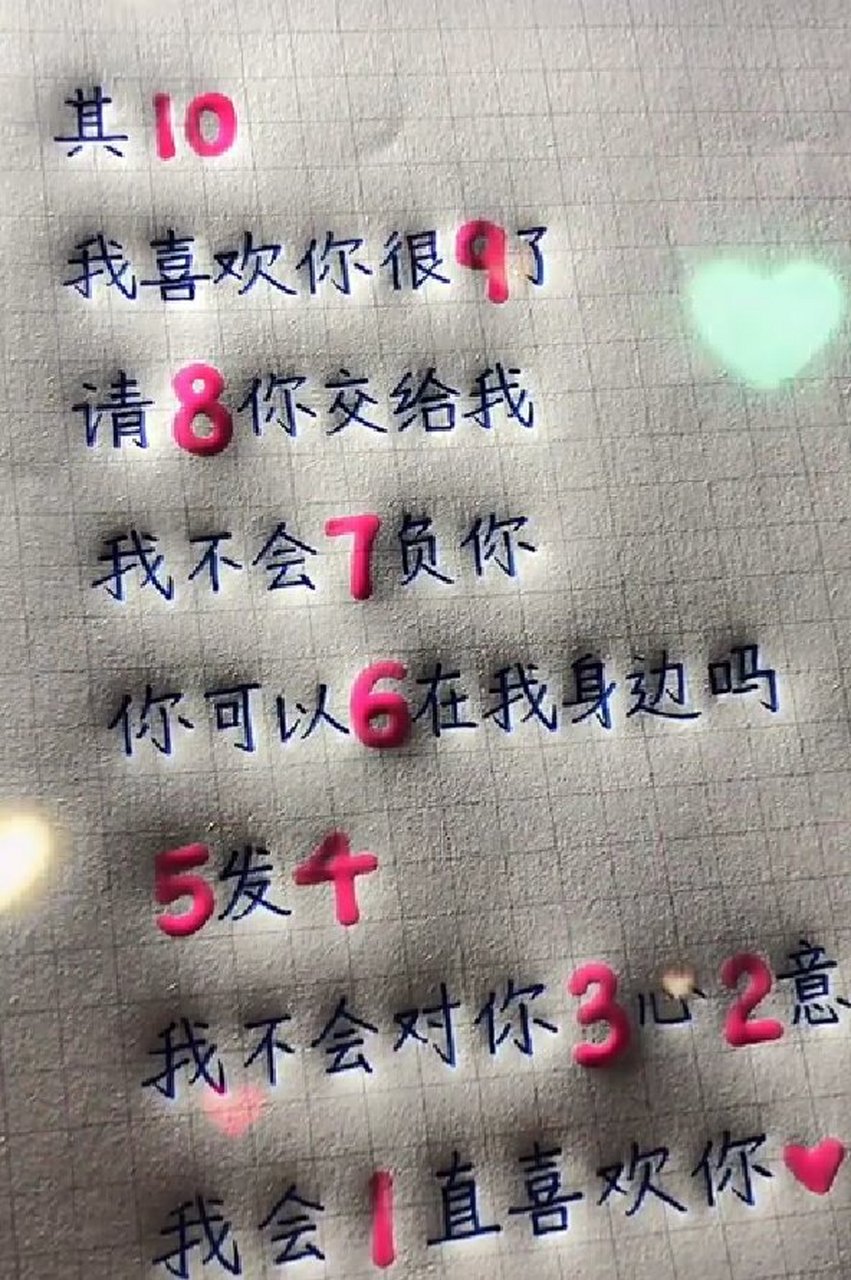 其10
我喜欢你很9了
请8你交给我
我不会7负你
你可以6在我身边吗
5发4
我不会对你3心2意
我会1直喜欢你